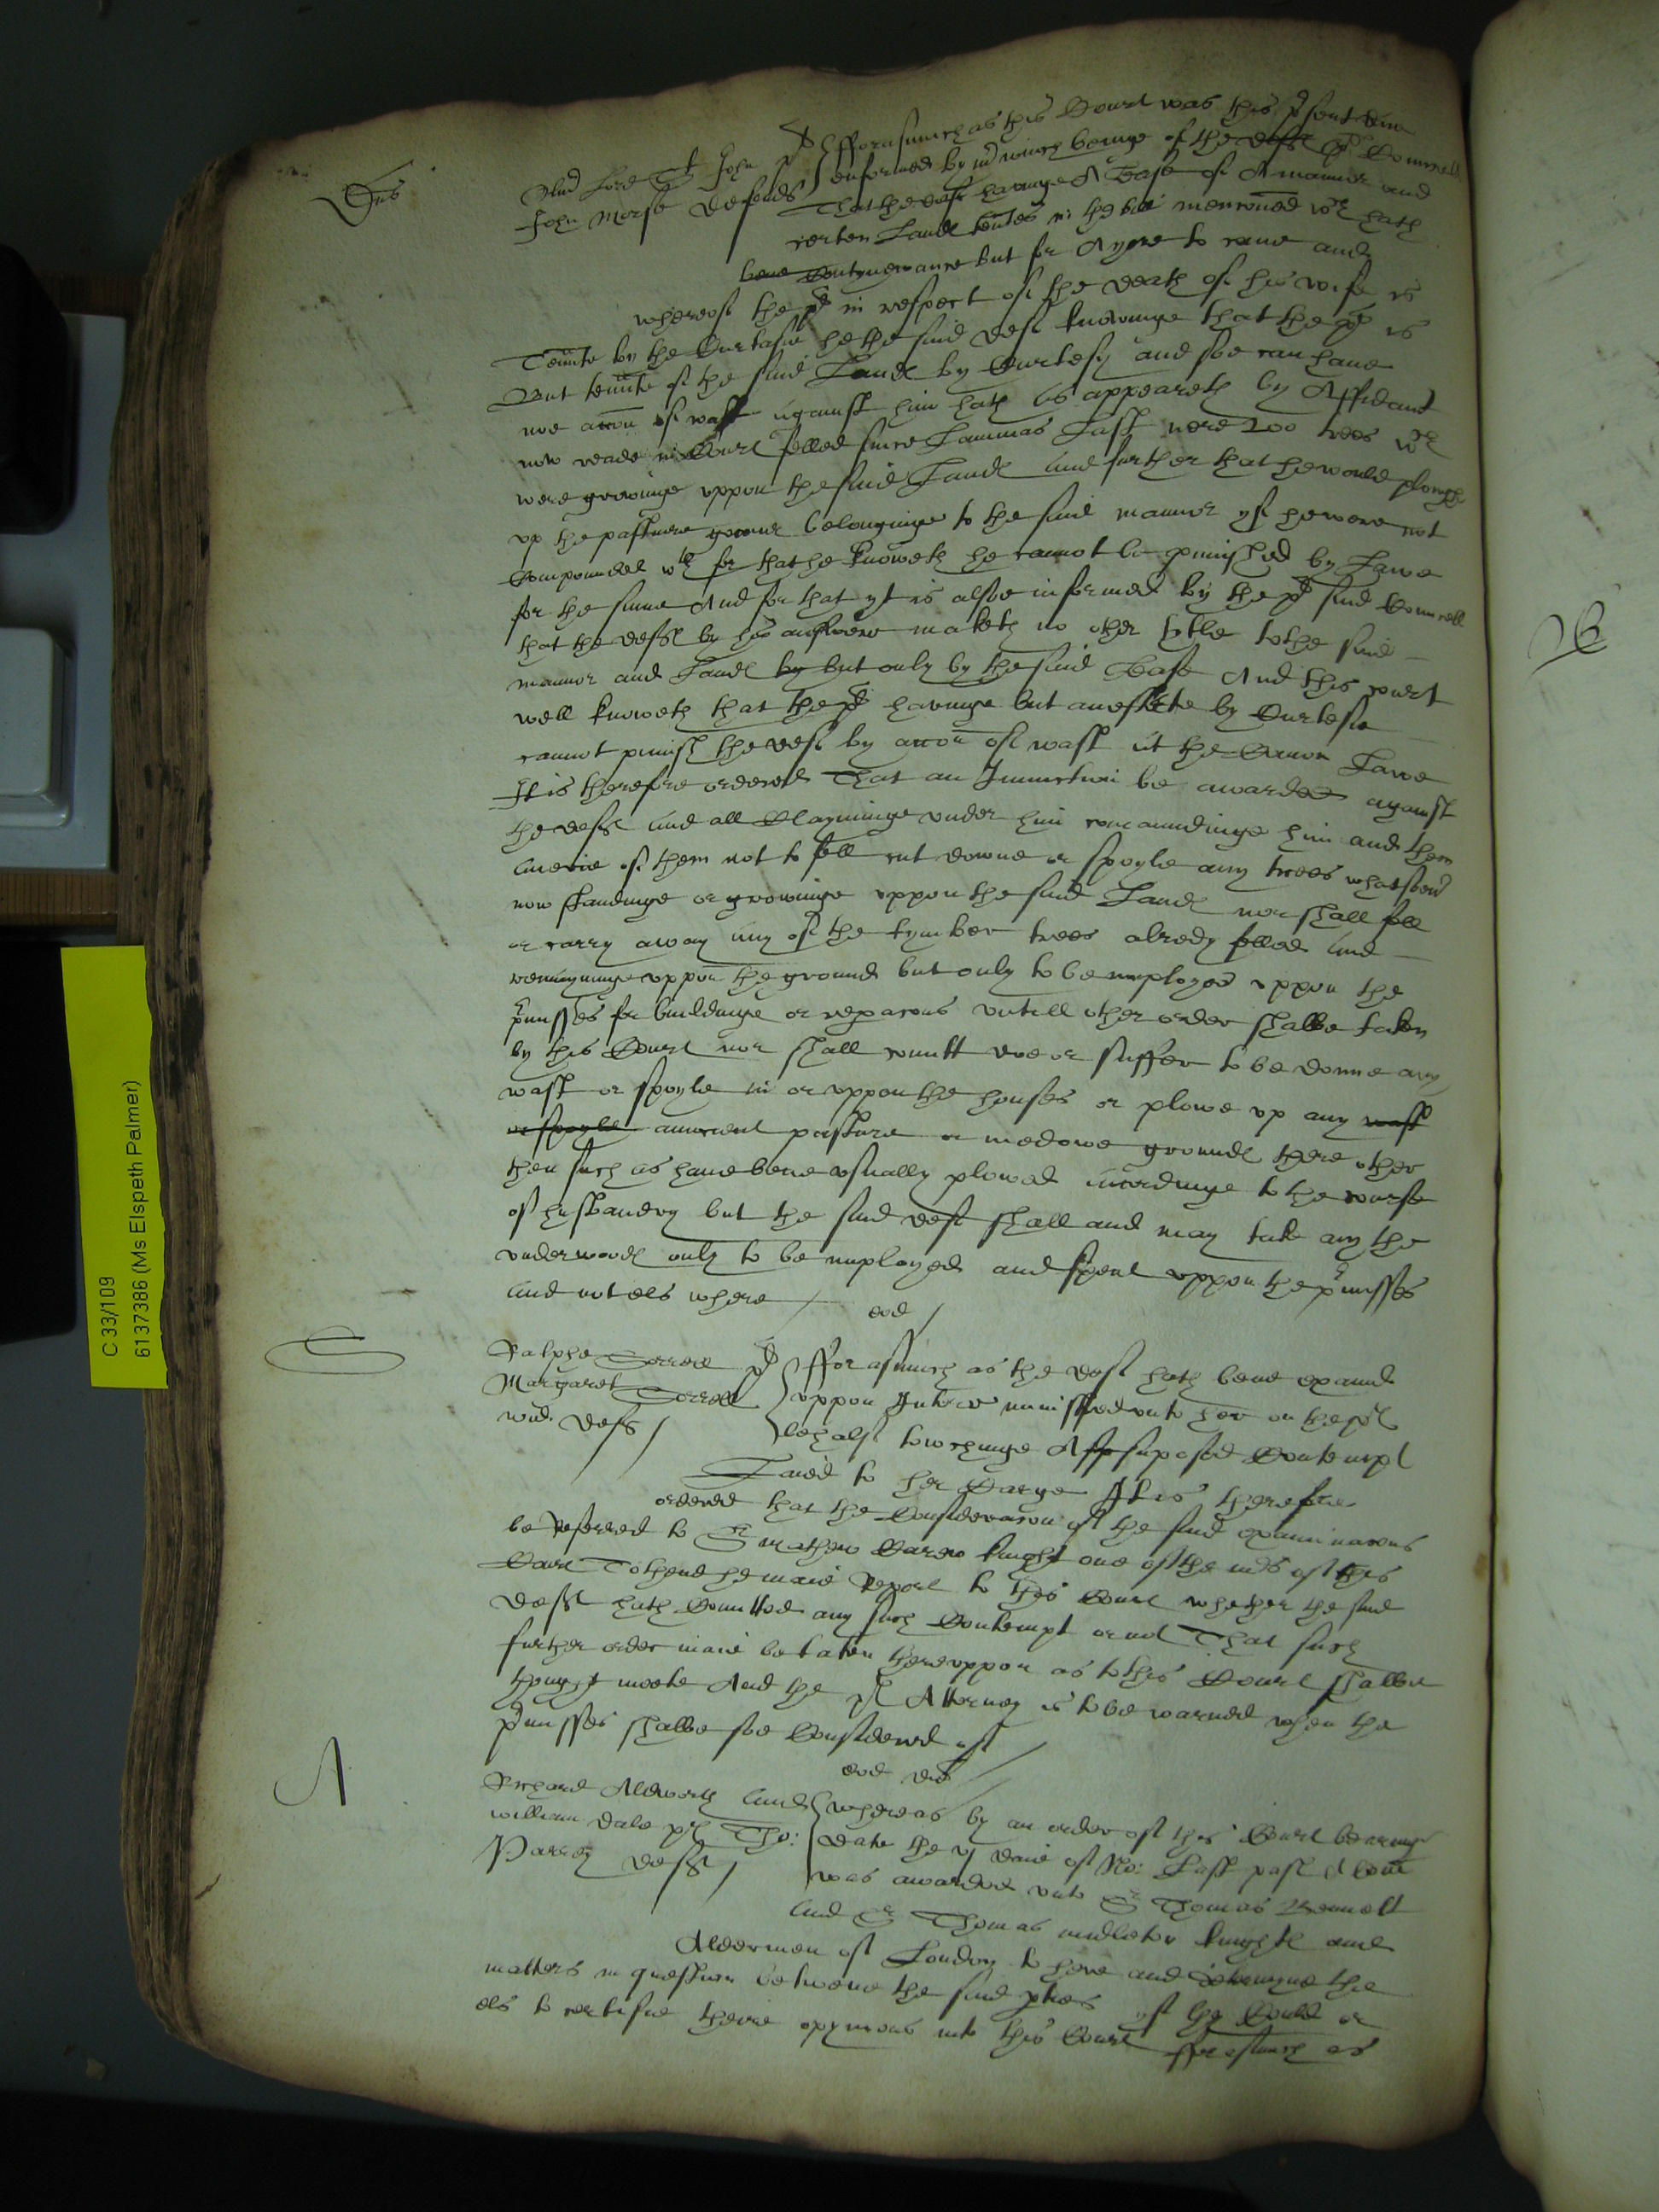 Dns
Olivd Lord St John pl
John Morse defend
Fforasmuch as this Court was this p̱sent daie
enformed by mr wincḥ beinge of the deft plt Councell
That the deft havinge A Lease of A mannor and
certen Landℓ tentes in the bill mencioned wch hath
bene Contynewance but for A yere to come and
whereof the pl in respect of the death of his wife is
Tennte by the Curtasie he the said deft knowinge that the pl is
But tennte of the said Landℓ by Curtesy and soe can have
noe accon of wast against him hath as appeareth by Affidavit
now reade in Court felled since Lammas Last nere 200 trees wch
were growinge uppon the said Landℓ And further that he would plough
up the pasture ground belonginge to the said mannor yf he were not
Compounded wth for that he knoweth he cannot be punished by Lawe
for the same And for that yt is alsoe informed by the pl said Councell
that the defte by his answere maketh no other tytle to the said
mannor and Landℓ by but only by the said Lease And this court
well knoweth that the pl havinge but an estate by Curtesie
cannot punish the deft by accon of wast at the Comon Lawe
It is therefore ordered That an Iniunction be awarded against
the defte and all Clayminge under him comaundinge him and them
and evie of them not to fell cut downe or spoyle any trees whatsoevr
now standinge or growinge uppon the said Landℓ nor shall fell
or carry away any of the tymber trees alredy felled and
remayninge uppon the ground but only to be imployed uppon the
pmisses for buildinge or reparacons untill other order shalbe taken
by this Court nor shall comitt doe or suffer to be donne any
wast or spoyle in or uppon the houses or plowe up any wast
or spoyle auncient pasture or medowe groundℓ there other
then such as have bene usually plowed accordinge to the course
of husbandry but the said deft shall and may take any the
underwoodℓ only to be imployed and spent uppon the pmisses
and not els where /
eod /
S
Ralphe Sorrell pl
Margaret Sorrell
wid deft /
Fforasmuch as the deft hath bene examd
uppon Interr ministred unto her on the pl
behalf towchinge A sup supposed Contempt
Laied to her Charge It is therefore
ordered that the Consideracon of the said examinacons
be Referred to Sr Mathew Carew knight one of the mrs of this
Court To thend he maie Report to this Court whether the said
deft hath Comitted any such Contempt or not That such
further order maie be taken thereuppon as to this Court shalbe
thought meete And the pl Attorney is to be warned when the
pmisses shalbe soe Considered of /
eod die
A
Richard Aldworth and
William dale pl Tho:
Parrey deft /
whereas by an order of this Court bearinge
date the vj daie of No: Last past A Comi
was awarded unto Sr Thomas Bennett
and Sr Thomas Midleton knightℓ and
Aldermen of London to here and determyne the
matters in question betweene the said pties yf they Could or
els to certifie theire opynions into this Court fforasmuch as
B
C 33/109
6137386 (Ms Elspeth Palmer)